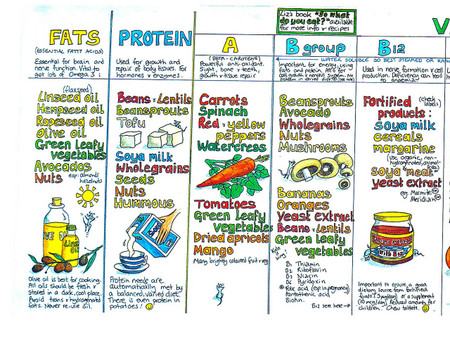 Liz's book "So what
do you eat?" available
for more info + recipes
V
FATS
(ESSENTIAL FATTY ACIDS)
Essential for brain and
nerve function. Vital to
get lots of Omega 3:
(flaxseed)
Linseed oil
Hempseed oil
Rapeseed oil
Olive oil
Green leafy
vegetables
Avocados
Nuts
Olive oil is best for cooking.
All oils should be fresh +
stored in a dark, cool place.
Avoid trans + hydrogenated
fats. Never re-use oil.
PROTEIN
Used for growth and
repair of body tissues, for
hormones + enzymes.
Beans + Lentils
Beansprouts
Tofu
Soya milk
Wholegrains
Seeds
Nuts
Hummous
Protein needs are
automatically met by
a balanced, varied diet.
There is even protein in
potatoes!
A
(BETA-CAROTENE)
Powerful anti-oxidant.
growth + tissue repair
Carrots
Spinach
Red + yellow
peppers
Watercress
Tomatoes
Green leafy
vegetables
Dried apricots
Mango
Many brightly coloured fruit + veg
B group
Important for energy, using
fats and protein.
Beansprouts
Avocado
Wholegrains
Nuts
Mushrooms
Bananas
Oranges
Yeast extract
Beans + Lentils
Green leafy
vegetables
B1 Thiamin
B2 Riboflavin
B3 Niacin
B6 Pyridoxin
Pantothenic acid
Biotin.
B12 see here →
B12
Used in nerve formation + cell
production. Deficiency can lead
to anaemia
Fortified
products:
(check labels)
soya milk
cereals
margarine
soya 'meat'
yeast extract
Marmite
Meridian
Important to ensure a good
dietary source from fortified
foods or a supplement